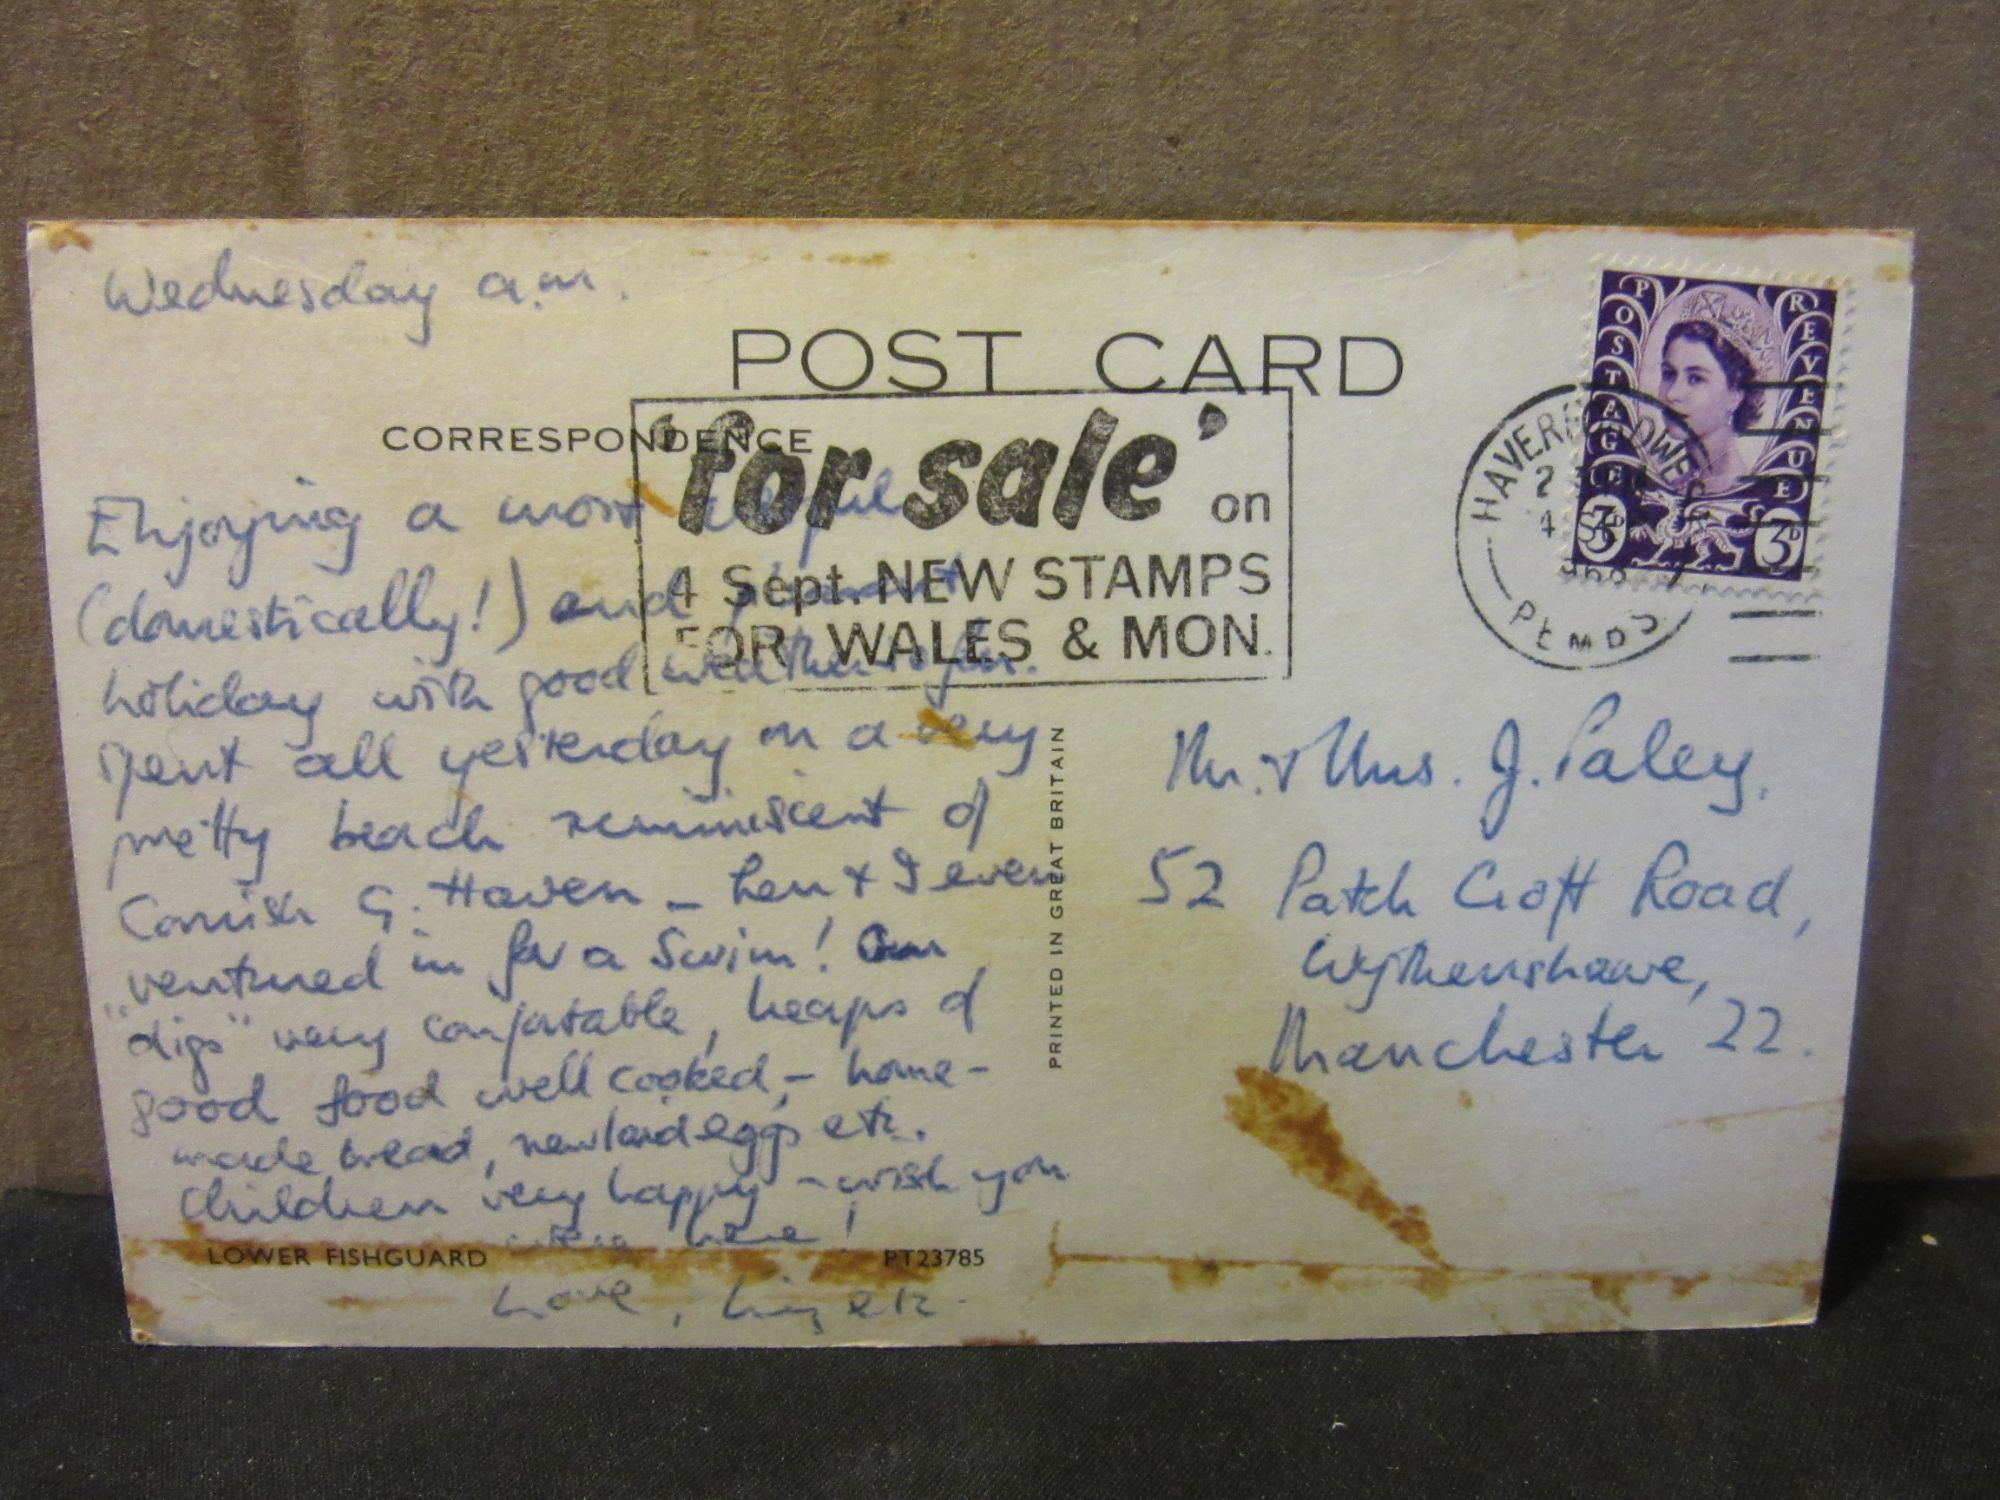 Wednesday a.m.
POST CARD
CORRESPONDENCE
'for sale' on
4 Sept. NEW STAMPS
FOR WALES & MON.
POSTAGE REVENUE
3D 3D
HAVERFORDWEST
PEMBS
Enjoying a most
(domestically!) and
holiday with good weather so far.
Spent all yesterday on a very
pretty beach reminiscent of
Cornish G. Haven – Len & I even
ventured in for a swim! Our
"digs" very comfortable, heaps of
good food well cooked, – home-
made bread, new laid eggs etc.
Children very happy – wish you
were here!
Love, etc.
LOWER FISHGUARD
PT23785
PRINTED IN GREAT BRITAIN
Mr. & Mrs. J. Paley.
52 Patch Croft Road,
Wythenshawe,
Manchester 22.